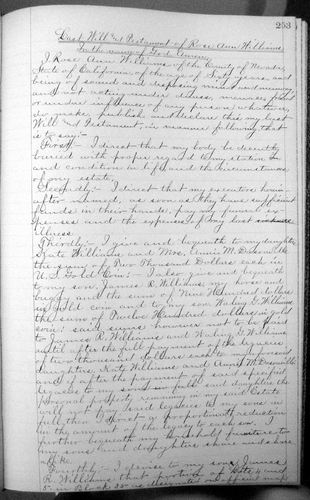 253
Last Will and Testament of Rose Ann Williams
In the name of God Amen,
I, Rose Ann Williams of the County of Nevada,
State of California, of the age of Sixty years, and
being of sound and disposing mind and memory,
and not acting under duress, menace, fraud
or undue influence of any person whatever,
do make, publish and declare this my last
Will and Testament, in manner following, that
is to say:—
First:— I direct that my body be decently
buried with proper regard to my station
and condition in life and the circumstances
of my estate.
Secondly:— I direct that my executors herein-
after named, as soon as they have sufficient
funds in their hands, pay my funeral ex-
penses and the expenses of my last
illness.
Thirdly:— I give and bequeath to my daughters
Kate Williams and Mrs. Annie M.
the sum of Two Thousand Dollars each in
U.S. Gold Coin:— I also give and bequeath
to my son, James R. Williams, my horse and
buggy and the sum of Nine Hundred dollars
in gold coin, and to my son G. Williams
the sum of Twelve Hundred dollars in gold
coin: said sums however not to be paid
to James R. Williams and G. Williams
until after the full payment of the legacies
of two thousand dollars each to my
daughters, Kate Williams and Annie M.
and if after the payment of said specified
legacies to my in full said daughters the
personal property remaining in my said Estate
will not pay said legacies to my sons in
full then I direct a proportionate reduction
in the amount of the legacy to each son. I
further bequeath my household furniture to
my sons and daughters share and share
alike.
Fourthly:— I devise to my son, James
R. Williams that portion of Lots 4 and
5 in Block 30 as designated on official map